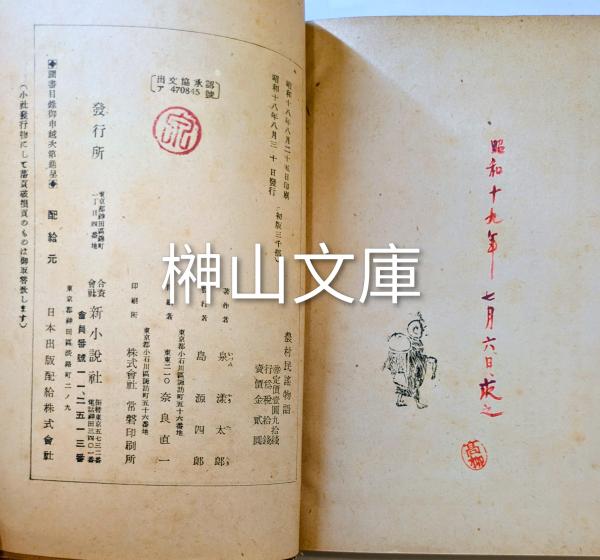 昭和十九年七月六日求之
高柳
農村民謡物語
㊞定價壹圓九拾錢
行爲稅拾錢
賣價金貳圓
昭和十八年八月二十五日印刷
昭和十八年八月三十日發行
(初版三千部)
出文協承認
ア 470845 號
著作者 泉 漾太郎
發行者 島 源四郎
東京都小石川區諏訪町五十六番地
東東二一〇 奈良直一
東京都小石川區諏訪町五十六番地
印刷所 株式會社 常磐印刷所
發行所
東京都神田區錦町
一丁目四番地
合資會社 新小説社
振替東京五七三二番
電話神田三四〇一番
會員番號一一二五一三番
配給元
東京都神田區淡路町二ノ九
日本出版配給株式會社
◆圖書目錄御申越次第進呈◆
(小社發行物にして落頁破損頁のものは御取替致します)
榊山文庫